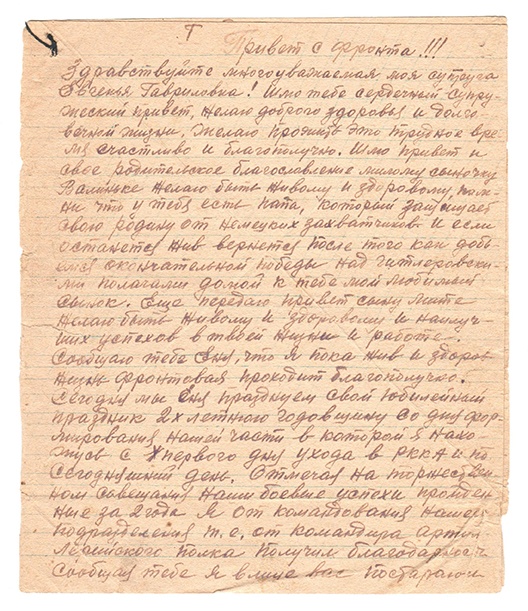 Т
Привет с фронта!!!
Здравствуйте многоуважаемая моя супруга
Евгенья Гавриловна! Шлю тебе сердечный супру-
жеский привет, желаю доброго здоровья и долго
вечной жизни, желаю прожить это трудное вре-
мя счастливо и благополучно. Шлю привет и
свое родительское благославление милому сыночку
Валиньке желаю быть живому и здоровому пом-
ни что у тебя есть папа, который защищает
свою родину от немецких захватчиков и если
останется жив вернется после того как добь-
емся окончательной победы над гитлеровски-
ми домой к тебе мой любимый
сынок. Еще передаю привет сыну Мите
желаю быть живому и здоровому и наилуч-
ших успехов в твоей жизни и работе.
Сообщаю тебе Еня, что я пока жив и здоров
жизнь фронтовая проходит благополучно.
Сегодня мы Еня празднуем свой юбилейный
праздник 2х летнюю годовщину со дня фор-
мирования нашей части в которой я нахо-
жусь с первого дня ухода в РККА и по
сегодняшний день. Отмечая на торжествен
ном совещания наши боевые успехи пройден
ные за 2 года я от командования нашего
подразделения т.е. от командира артил
лерийского полка получил благодарность
Сообщая тебе я в лице вас постараюсь